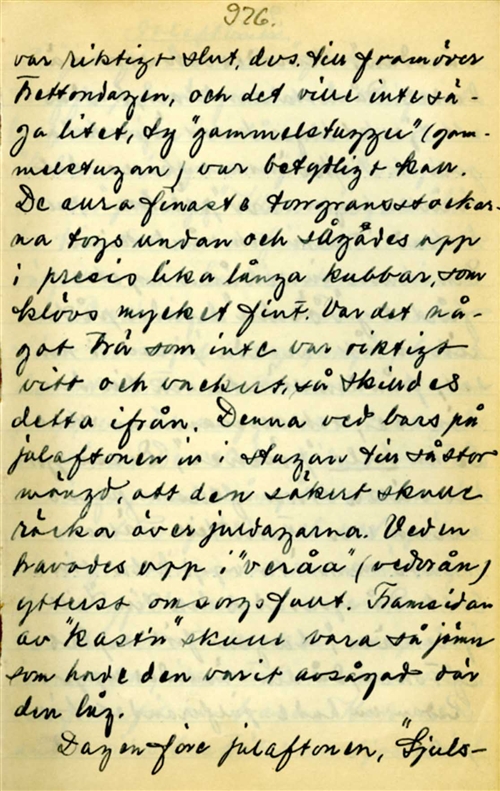 926.
var riktigt slut, dvs. till framöver
Trettondagen, och det ville inte sä-
ga litet, ty "gammelstuggu" (gam-
melstugan) var betydligt kall.
De allra finaste torrgransstockar-
na togs undan och sågades upp
i precis lika långa kubbar, som
klövs mycket fint. Var det nå-
got trä som inte var riktigt
vitt och vackert, så skildes
detta ifrån. Denna ved bars på
julaftonen in i stugan till så stor
mängd, att den säkert skulle
räcka över juldagarna. Veden
travades upp i "veråa" (vedvrån)
ytterst omsorgsfullt. Framsidan
av "kast'n" skulle vara så jämn
som hade den varit avsågad där
den låg.
Dagen före julaftonen, "Sjuls-